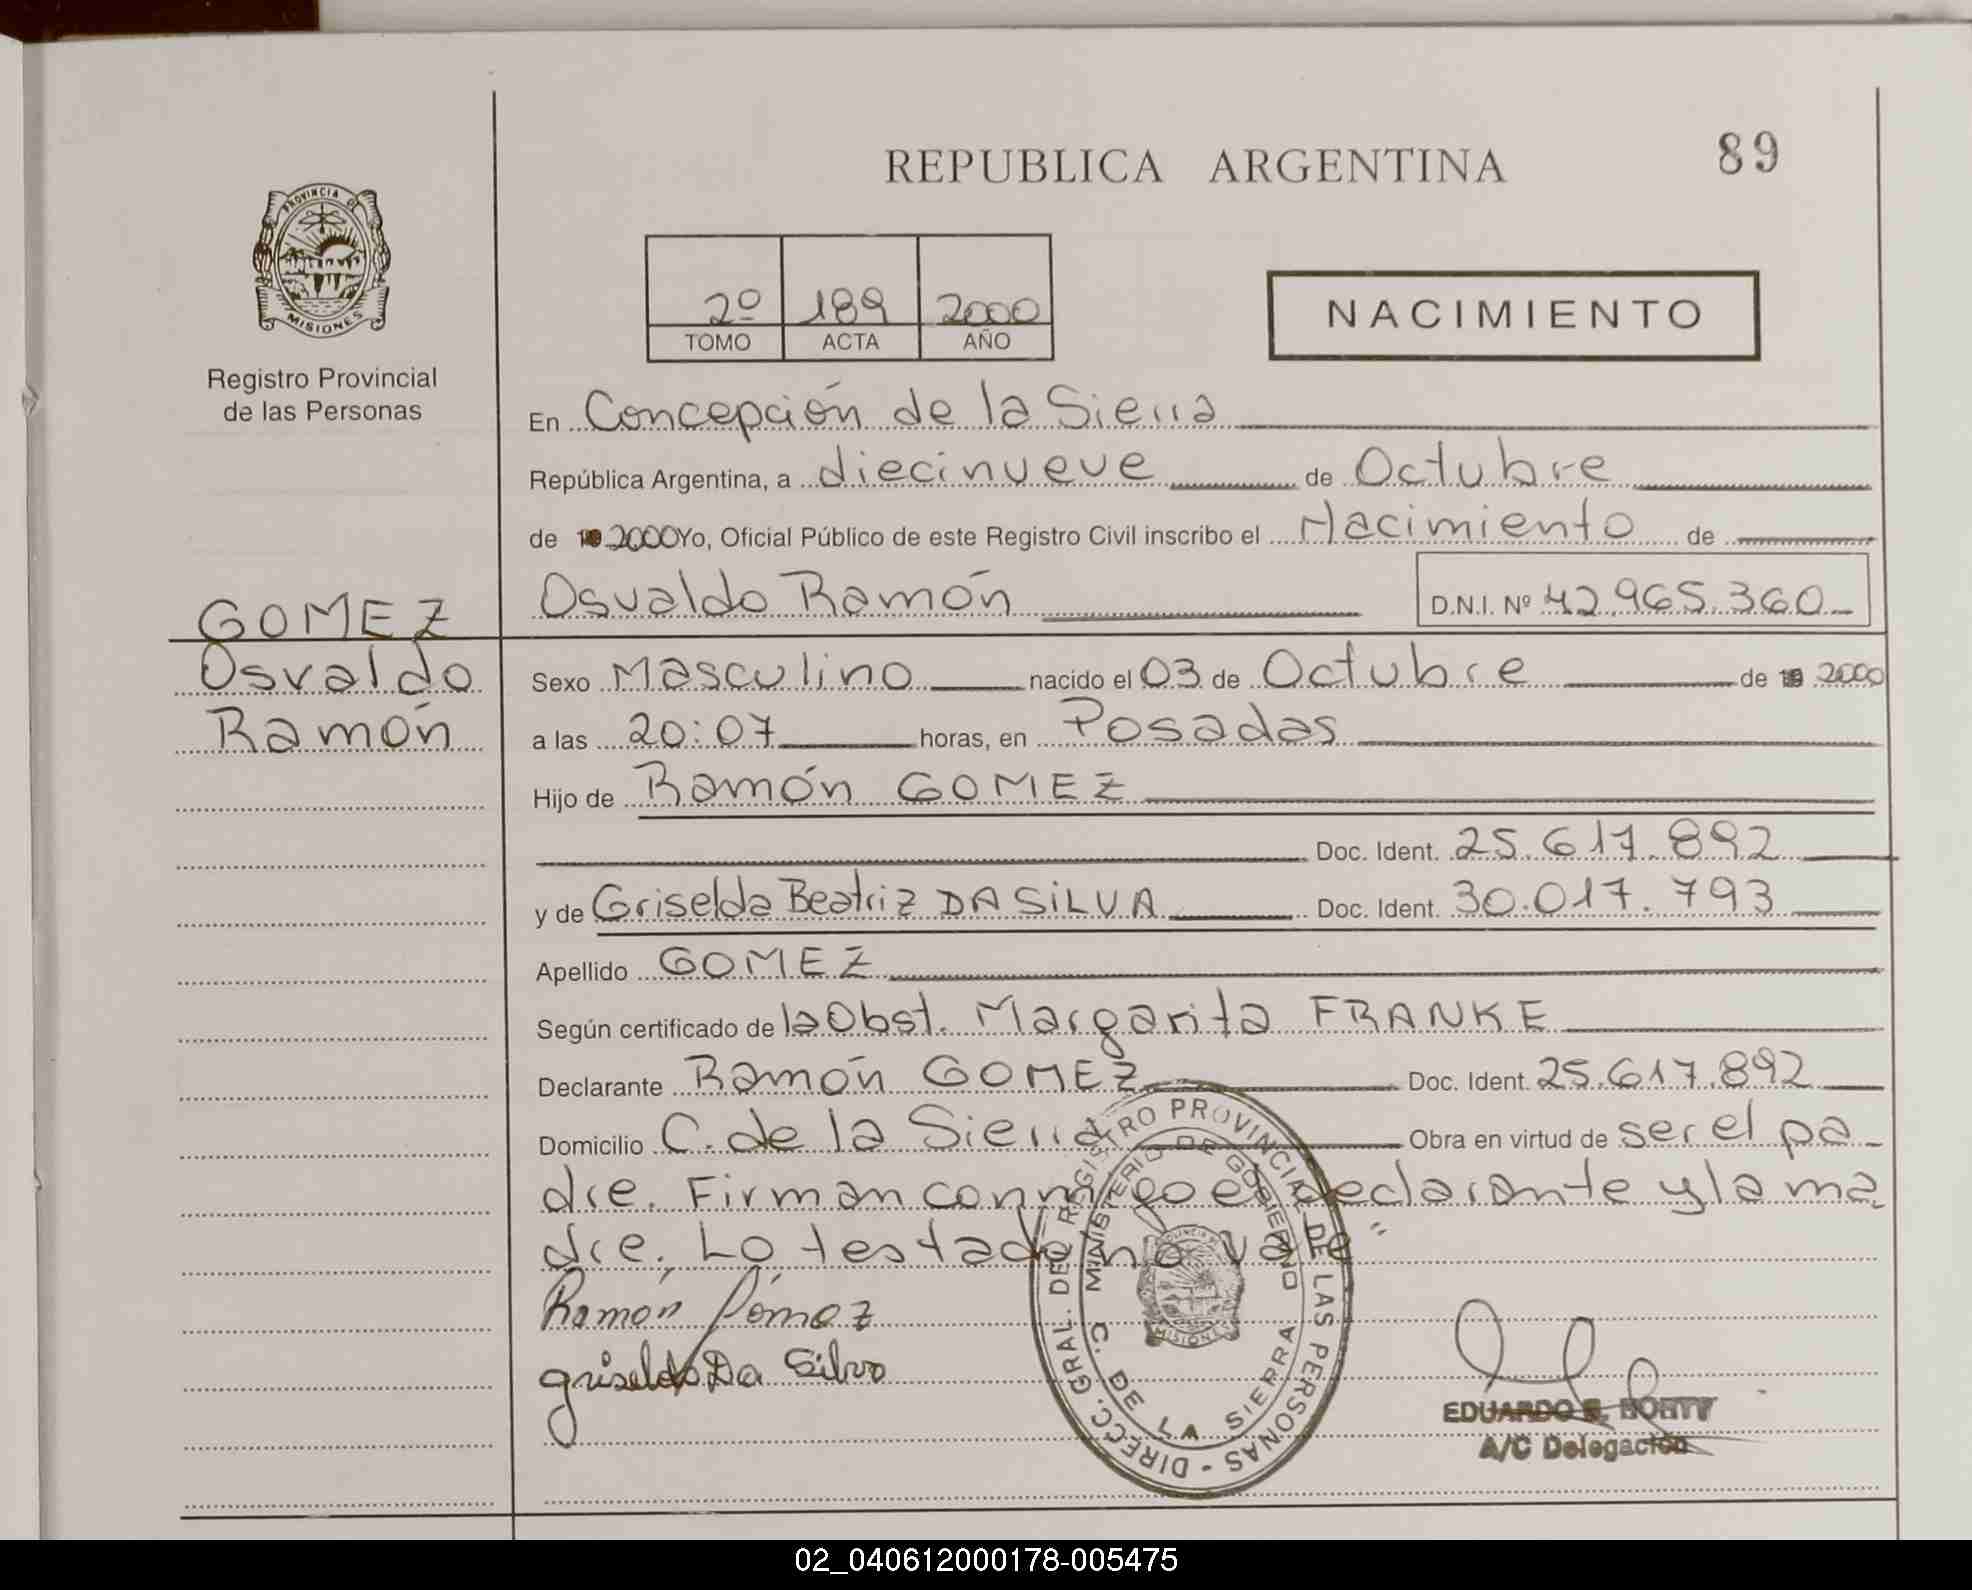 REPUBLICA ARGENTINA
89
PROVINCIA DE
MISIONES
Registro Provincial
de las Personas
2º 189 2000
TOMO ACTA AÑO
NACIMIENTO
En Concepción de la Sierra
República Argentina, a diecinueve de Octubre
de 2000 Yo, Oficial Público de este Registro Civil inscribo el Nacimiento de
Osvaldo Ramón D.N.I. Nº 42.965.360
GOMEZ
Osvaldo
Ramón
Sexo Masculino nacido el 03 de Octubre de 2000
a las 20:07 horas, en Posadas
Hijo de Ramón GOMEZ
Doc. Ident. 25.617.892
y de Griselda Beatriz DA SILVA Doc. Ident. 30.017.793
Apellido GOMEZ
Según certificado de la Obst. Margarita FRANKE
Declarante Ramón GOMEZ Doc. Ident. 25.617.892
Domicilio C. de la Sierra Obra en virtud de ser el pa_
dre. Firman conmigo el declarante y la ma_
dre. Lo testado no vale"
Ramón Gómez
griselda Da Silva
DIRECC. GRAL. DEL REGISTRO PROVINCIAL DE LAS PERSONAS -
MINISTERIO DE GOBIERNO
C. DE LA SIERRA
PROVINCIA DE
MISIONES
EDUARDO
A/C Delegación
02_040612000178-005475